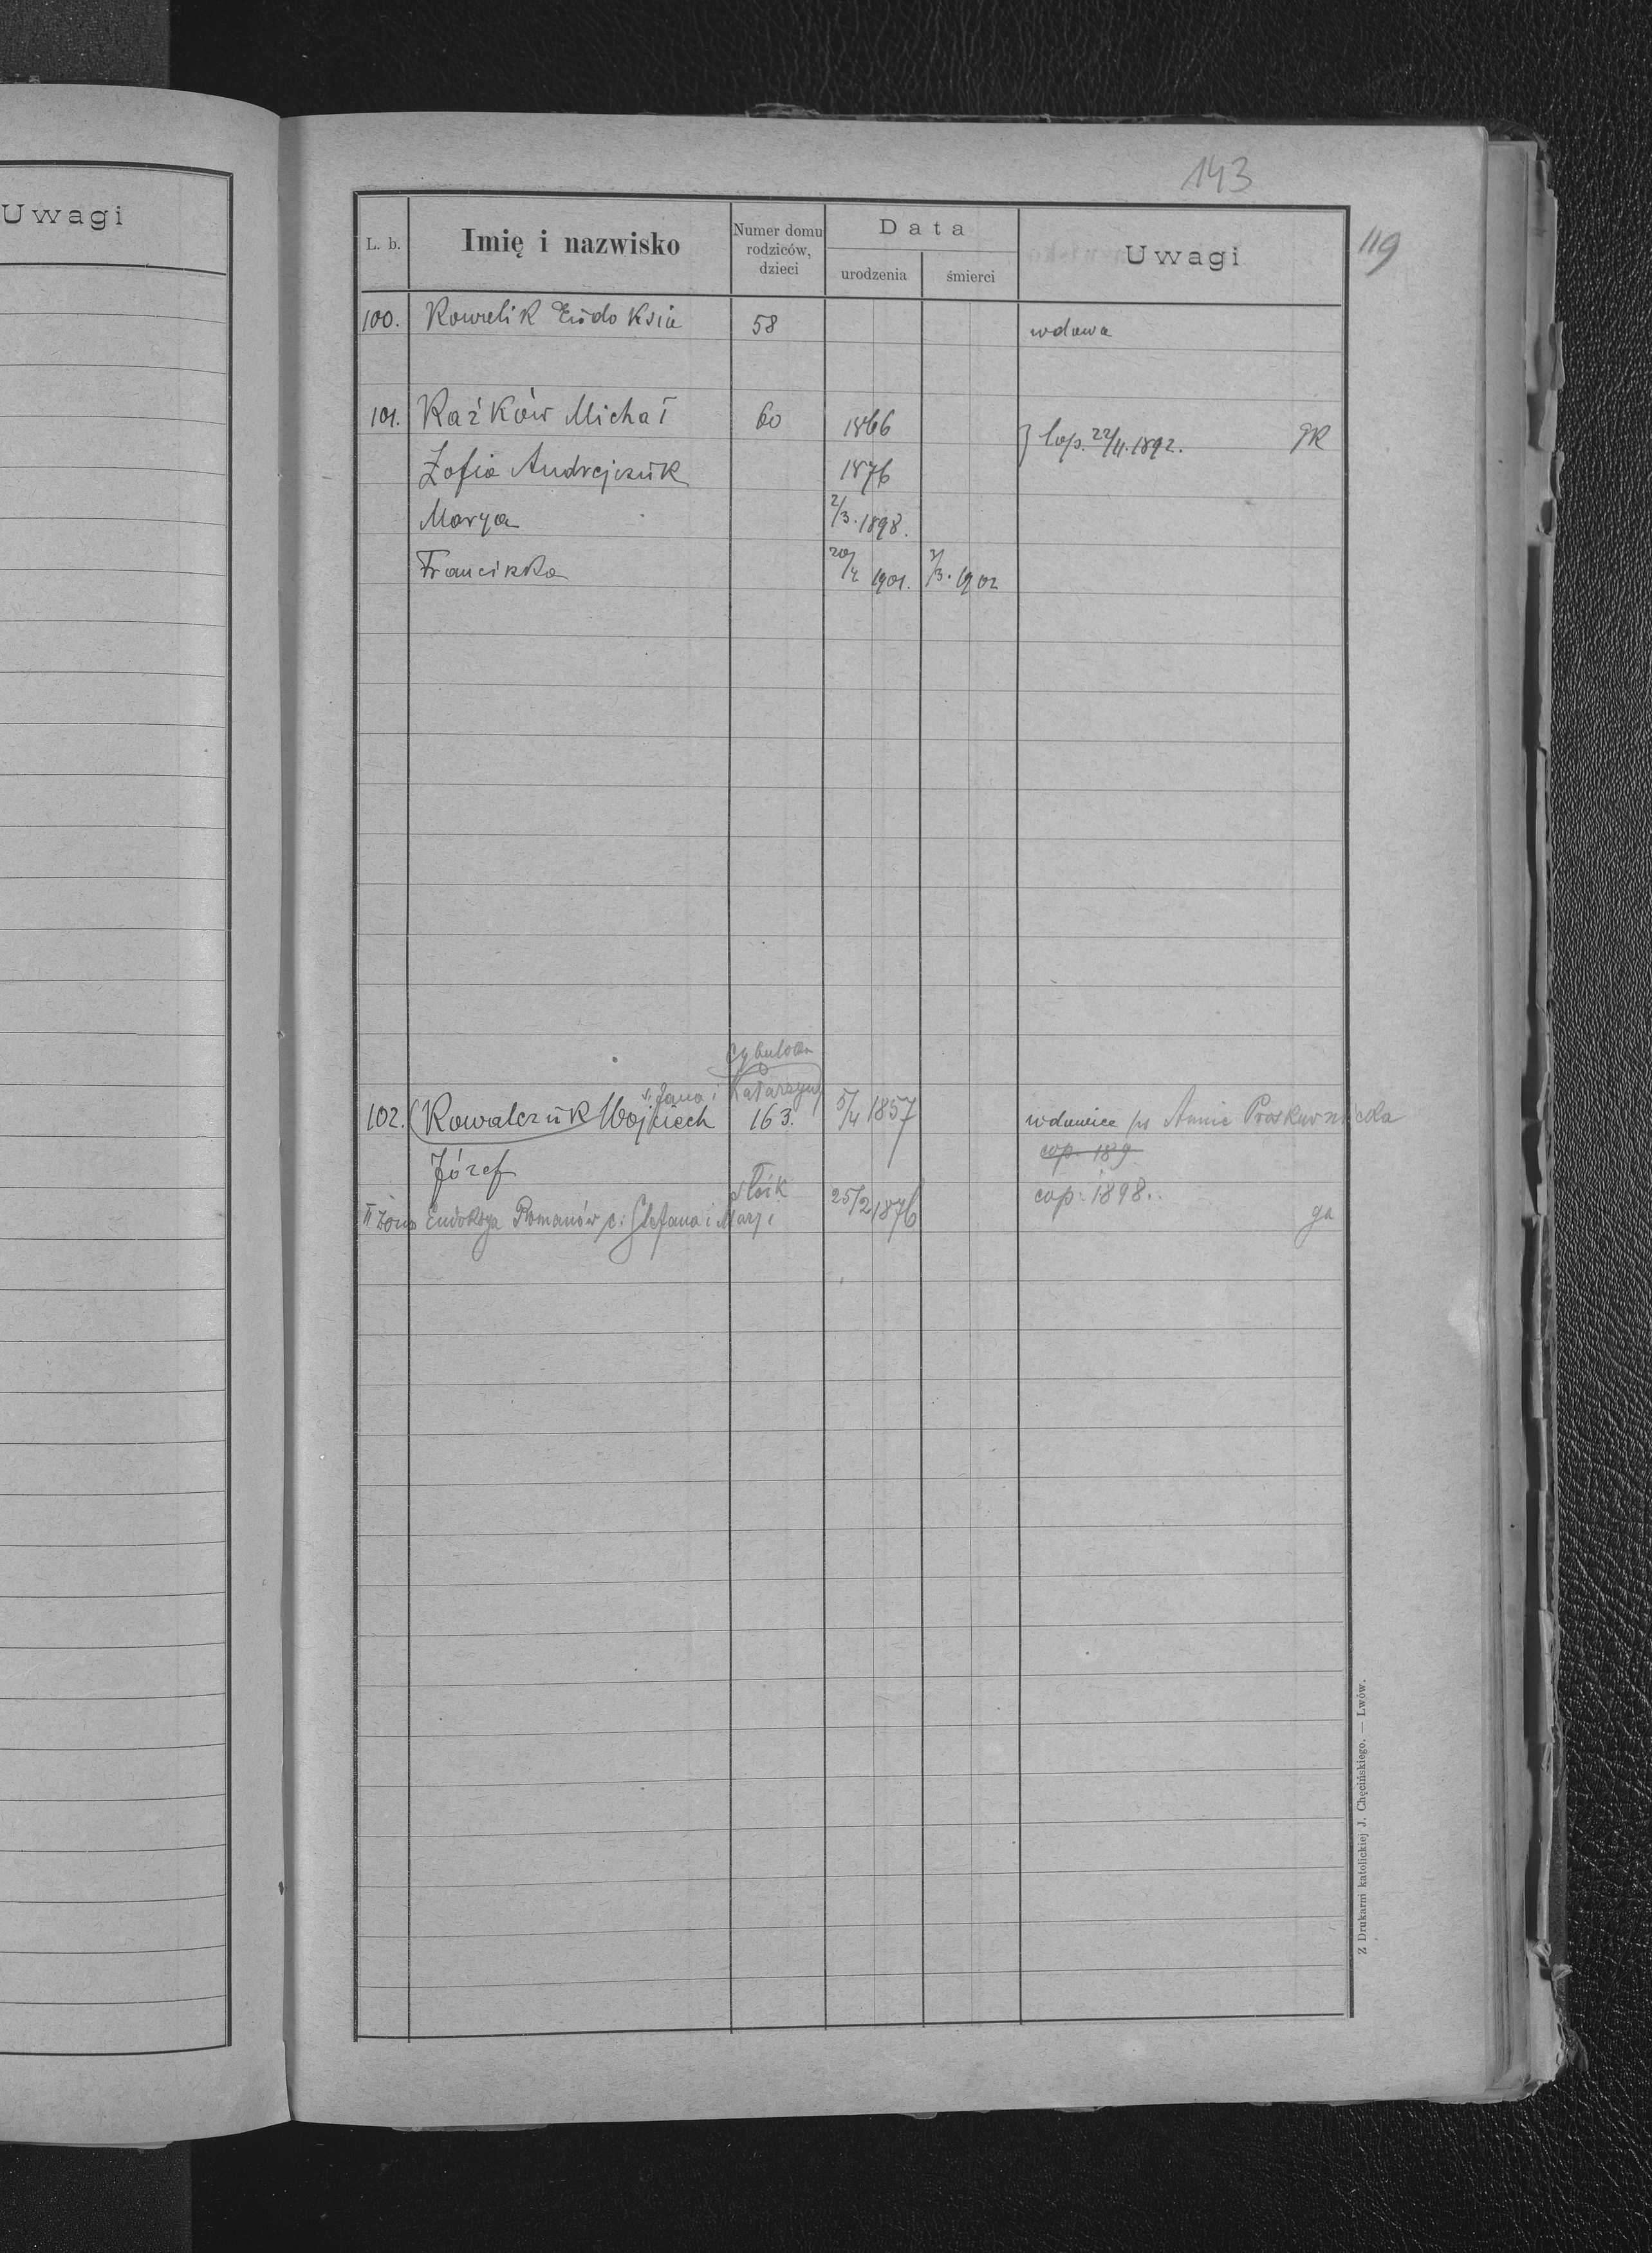 Uwagi
143
119
L. b. Imię i nazwisko Numer domu rodziców, dzieci Data urodzenia śmierci Uwagi
100. Kowelik Eudoksia 58 wdowa
101. Kaźków Michał 60 1866 } Cop. 22/11.1892. GR
Zofia Andrejczuk 1876
Marya 2/3.1898.
Franciszka 1901. 1902
Cybulska
s. Jana i Katarzyny
102. Kowalczuk Wojciech 163. 5/4 1857 wdowiec po Annie Proskurnicka
Józef cop. 189
Słoik cop. 1898.
II żona Eudoksya Romanów c. Stefana i Maryi 25/2 1876
Z Drukarni katolickiej J. Chęcińskiego. — Lwów.